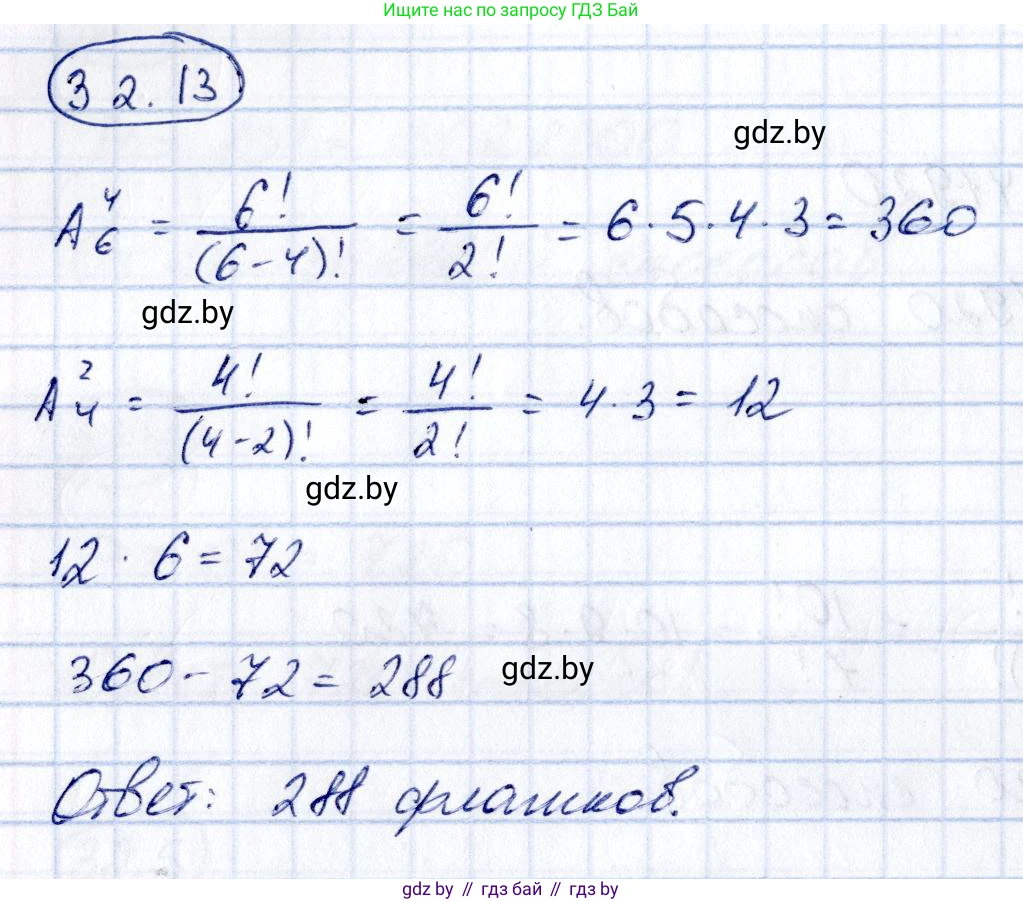 Ищите нас по запросу ГДЗ Бай
32.13
gdz.by
A₆⁴ = 6!/(6-4)! = 6!/2! = 6·5·4·3 = 360
gdz.by
A₄² = 4!/(4-2)! = 4!/2! = 4·3 = 12
gdz.by
12 · 6 = 72
360 - 72 = 288
gdz.by
Ответ: 288 флашков.
gdz.by // гдз бай // gdz.by